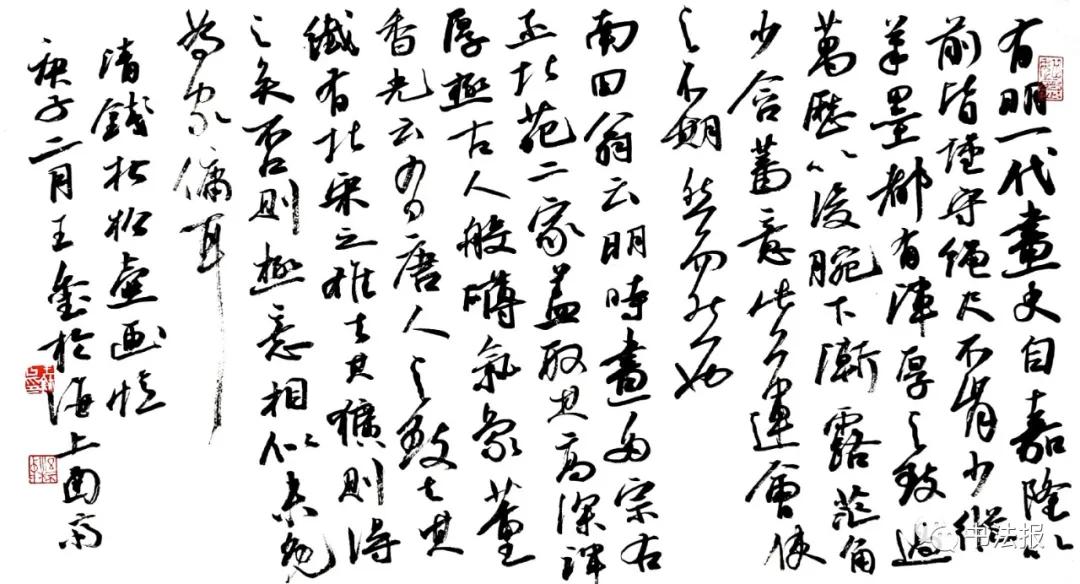 有明一代畫史自嘉隆以
前皆謹守繩尺不肯少縱
筆墨都有渾厚之致過
萬歷以後腕下漸露芒角
少含蓄意此乃運會使
之不期然而然也
南田翁云明時畫多宗右
丞北苑二家蓋取其高深渾
厚極古人般礴氣象董
香光云有唐人之致去其
纖有北宋之雄去其獷則得
之矣否則極意相似未免
為家傭耳
清錢杜松壺画憶
庚子二月王金於海上西斋
书法报